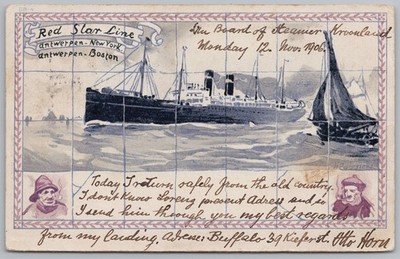 Red Star Line
Antwerpen-New York.
Antwerpen-Boston
On Board of Steamer Kroonland
Monday 12 Nov. 1906.
Today I return safely from the old country.
I don't know Loreng present Adress and so
I send him through you my best regards
from my landing. Adress: Buffalo 39 Kiefer st. Otto Horn